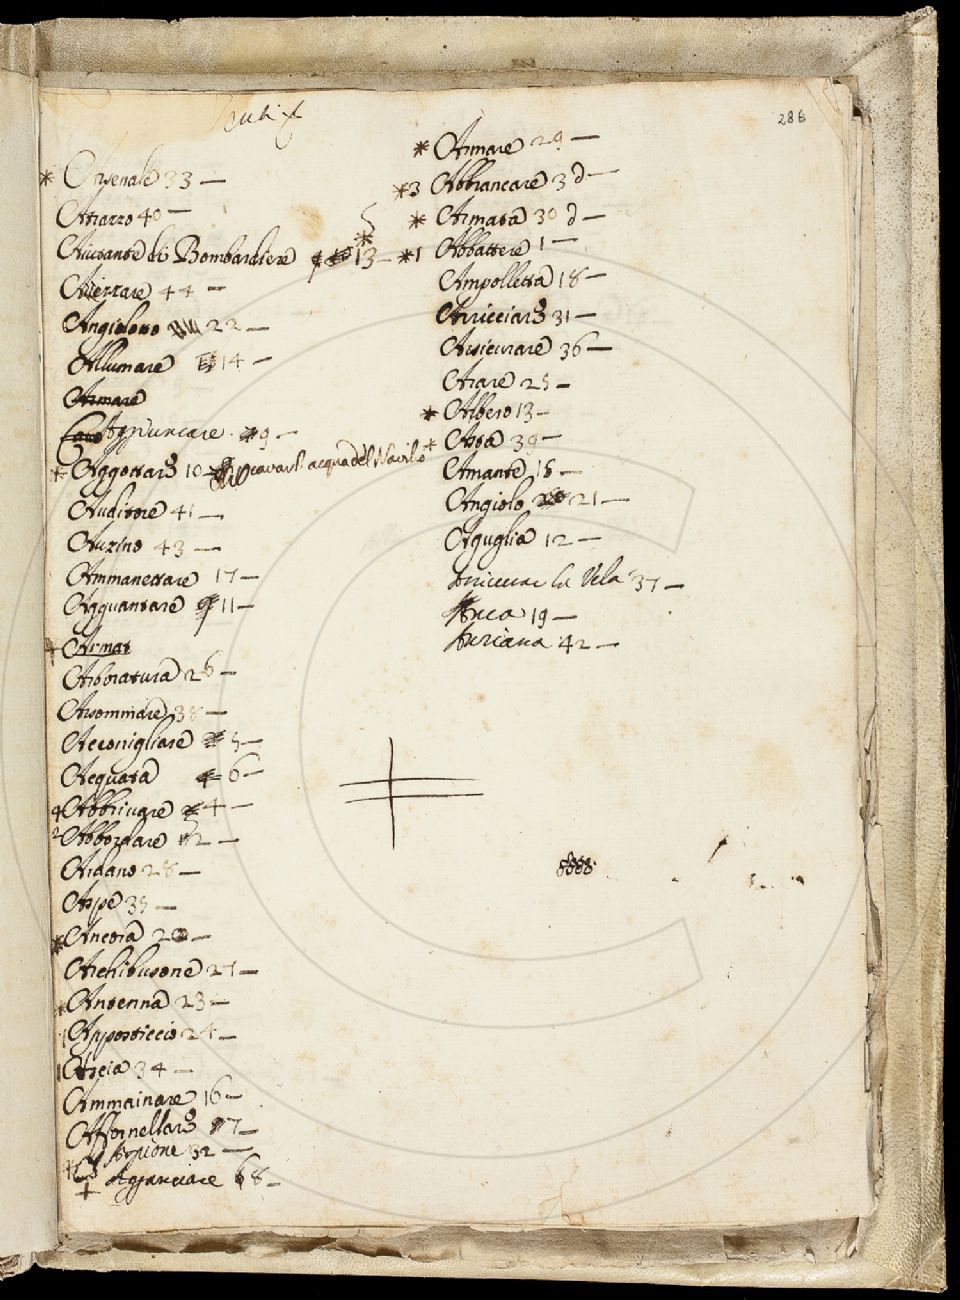 286
* Arsenale 33 —
Attarzo 40 —
Aiutante di Bombardiere 13 —
Aferrare 44 —
Angioloto 22 —
Allumare 14 —
Armare
Aggiuncare 9 —
* Aggottare 10 cavar l'acqua del Navilo
Auditore 41 —
Auzino 43 —
Ammanettare 17 —
Agguantare 11 —
Armat
Arboratura 26 —
Assommare 38 —
Acconigliare 5 —
Acquata 6 —
4 Abbrivare 4 —
2 Abbordare 2 —
Ardano 28 —
Aspe 35 —
* Ancora 20 —
Archibusone 27 —
* Antenna 23 —
Apposticcio 24 —
Ascia 34 —
Ammainare 16 —
Affornellare 7 —
Arpione 32 —
Agganciare 8 —
* Armare 29 —
* 3 Abbrancare 3 d —
* Armata 30 d —
* 1 Abbattere 1 —
Ampolletta 18 —
Arricciare 31 —
Assicurare 36 —
Arare 25 —
* Albero 13 —
* Asta 39 —
Amante 15 —
Angiolo 21 —
Aguglia 12 —
la Vela 37 —
Anca 19 —
Auriana 42 —